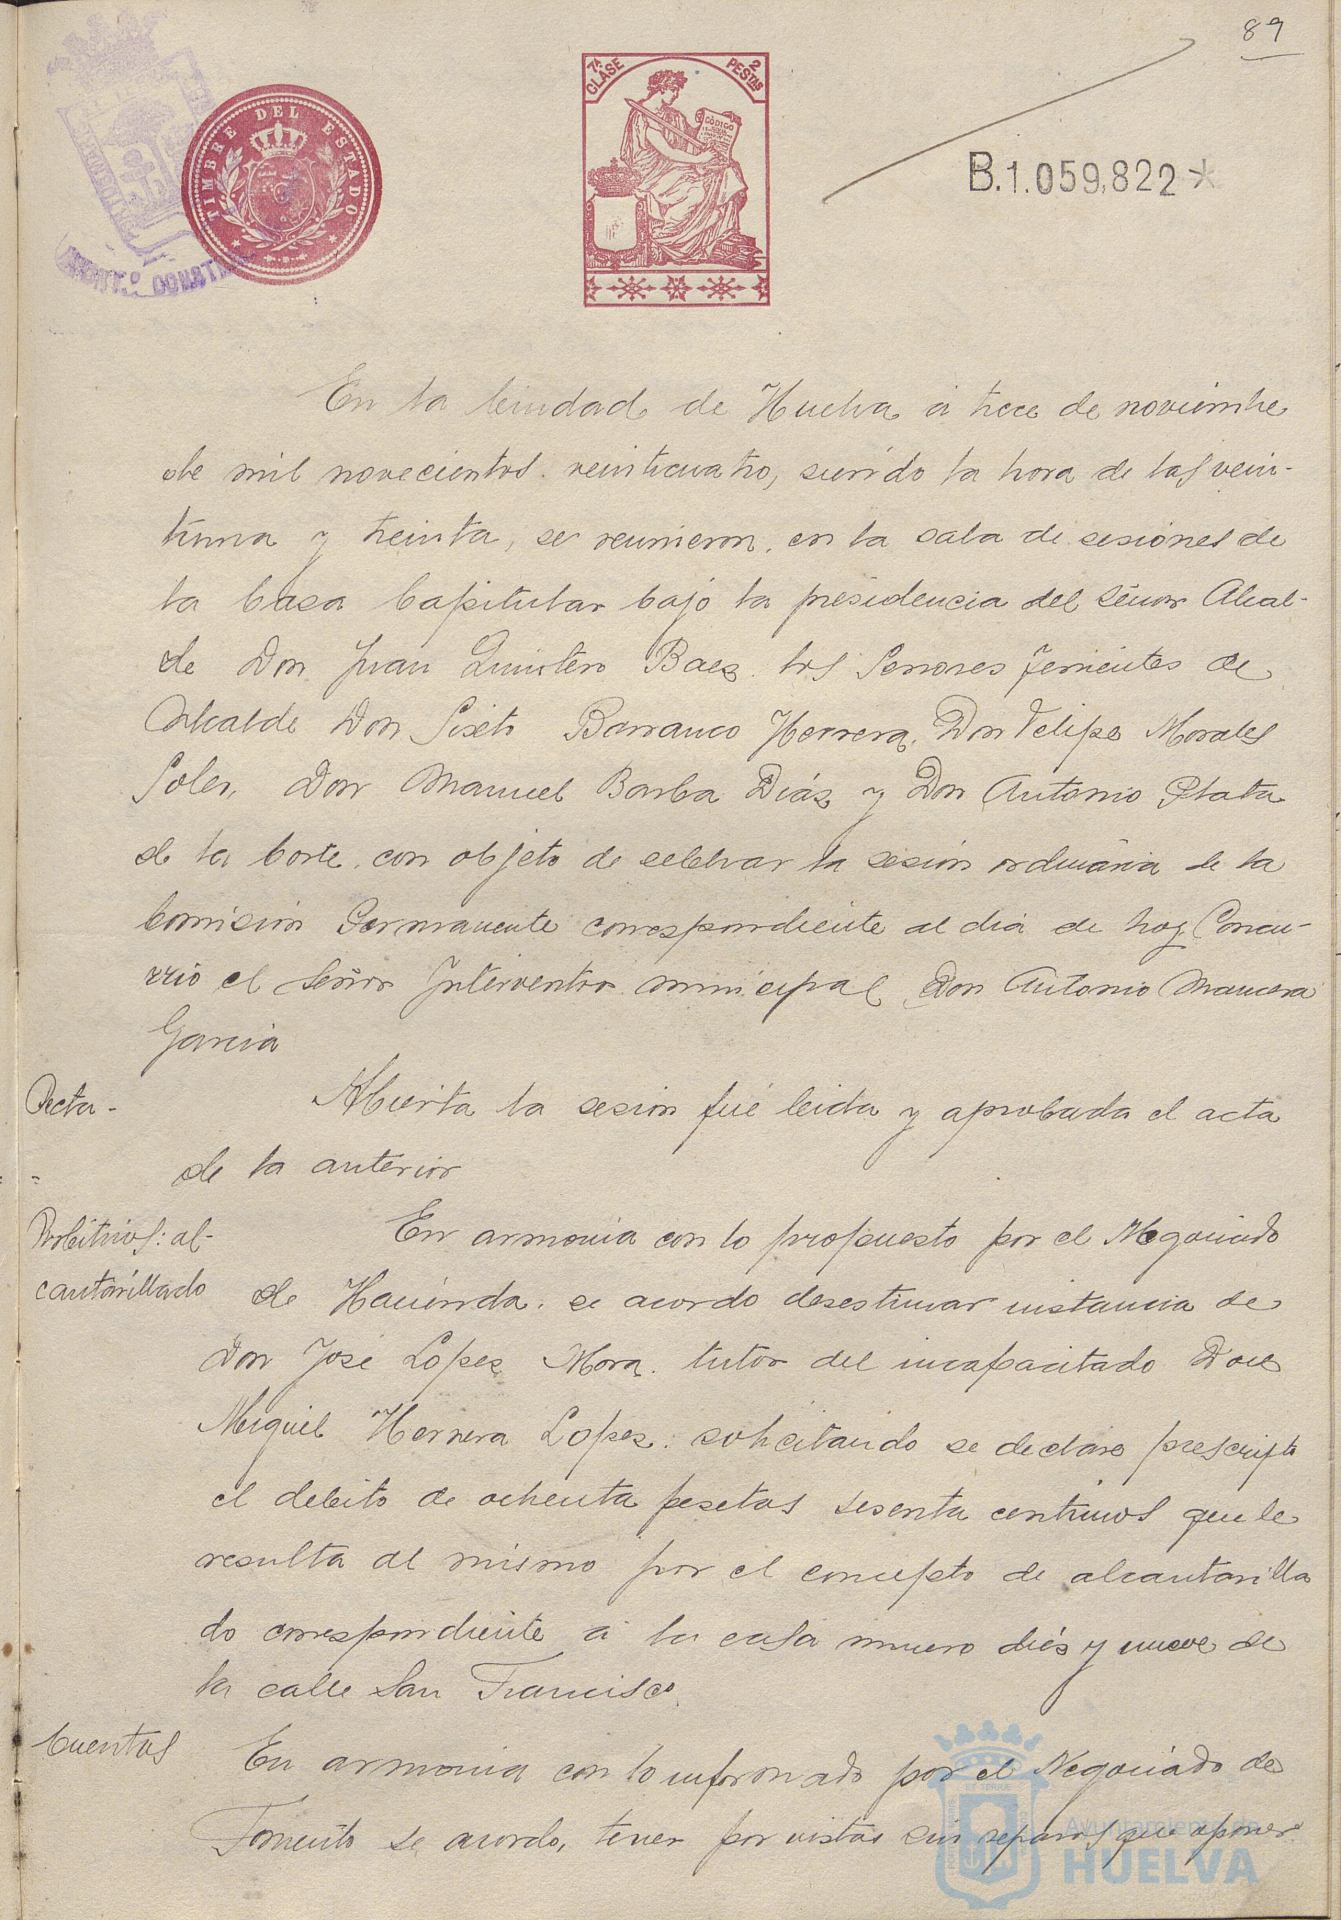 89
TIMBRE DEL ESTADO
7ª CLASE
2 PESTAS
CÓDIGO
B.1.059,822*
En la Ciudad de Huelva á trece de noviembre
de mil novecientos veinticuatro, siendo la hora de las vein-
tiuna y treinta, se reunieron en la sala de sesiones de
la Casa Capitular bajo la presidencia del Señor Alcal-
de Don Juan Quintero Baez los Señores Tenientes de
Alcalde Don Sixto Barranco Herrera, Don Felipe Morales
Soler, Don Manuel Barba Diáz y Don Antonio Plata
de la Corte con objeto de celebrar la sesión ordinaria de la
Comisión Permanente correspondiente al dia de hoy Concu-
rrió el Señor Interventor municipal Don Antonio Mancera
Garcia
Acta -
Abierta la sesion fué leida y aprobada el acta
de la anterior
Arbitrios: al-
cantarillado
En armonia con lo propuesto por el Negociado
de Hacienda se acordo desestimar instancia de
Don José Lopez Mora tutor del incapacitado Don
Miguel Herrera Lopez solicitando se declare prescripto
el debito de ochenta pesetas sesenta centimos que le
resulta al mismo por el concepto de alcantarilla
do correspondiente á la casa numero diés y nueve de
la calle San Francisco
Cuentas
En armonia con lo informado por el Negociado de
Fomento se acordo, tener por vistas sin reparos que oponer
Ayuntamiento de
HUELVA